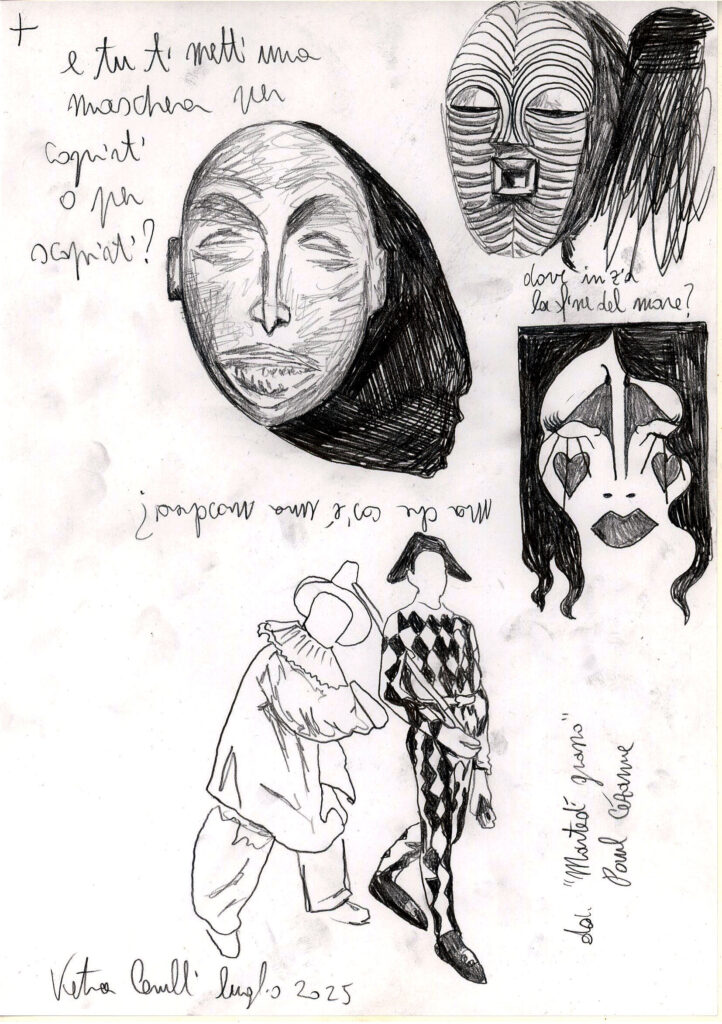 e tu ti metti una
maschera per
coprirti
o per
scoprirti?
dove inizia
la fine del mare?
ma che cos'è una maschera?
dal "Martedì grasso"
Paul Cézanne
luglio 2025